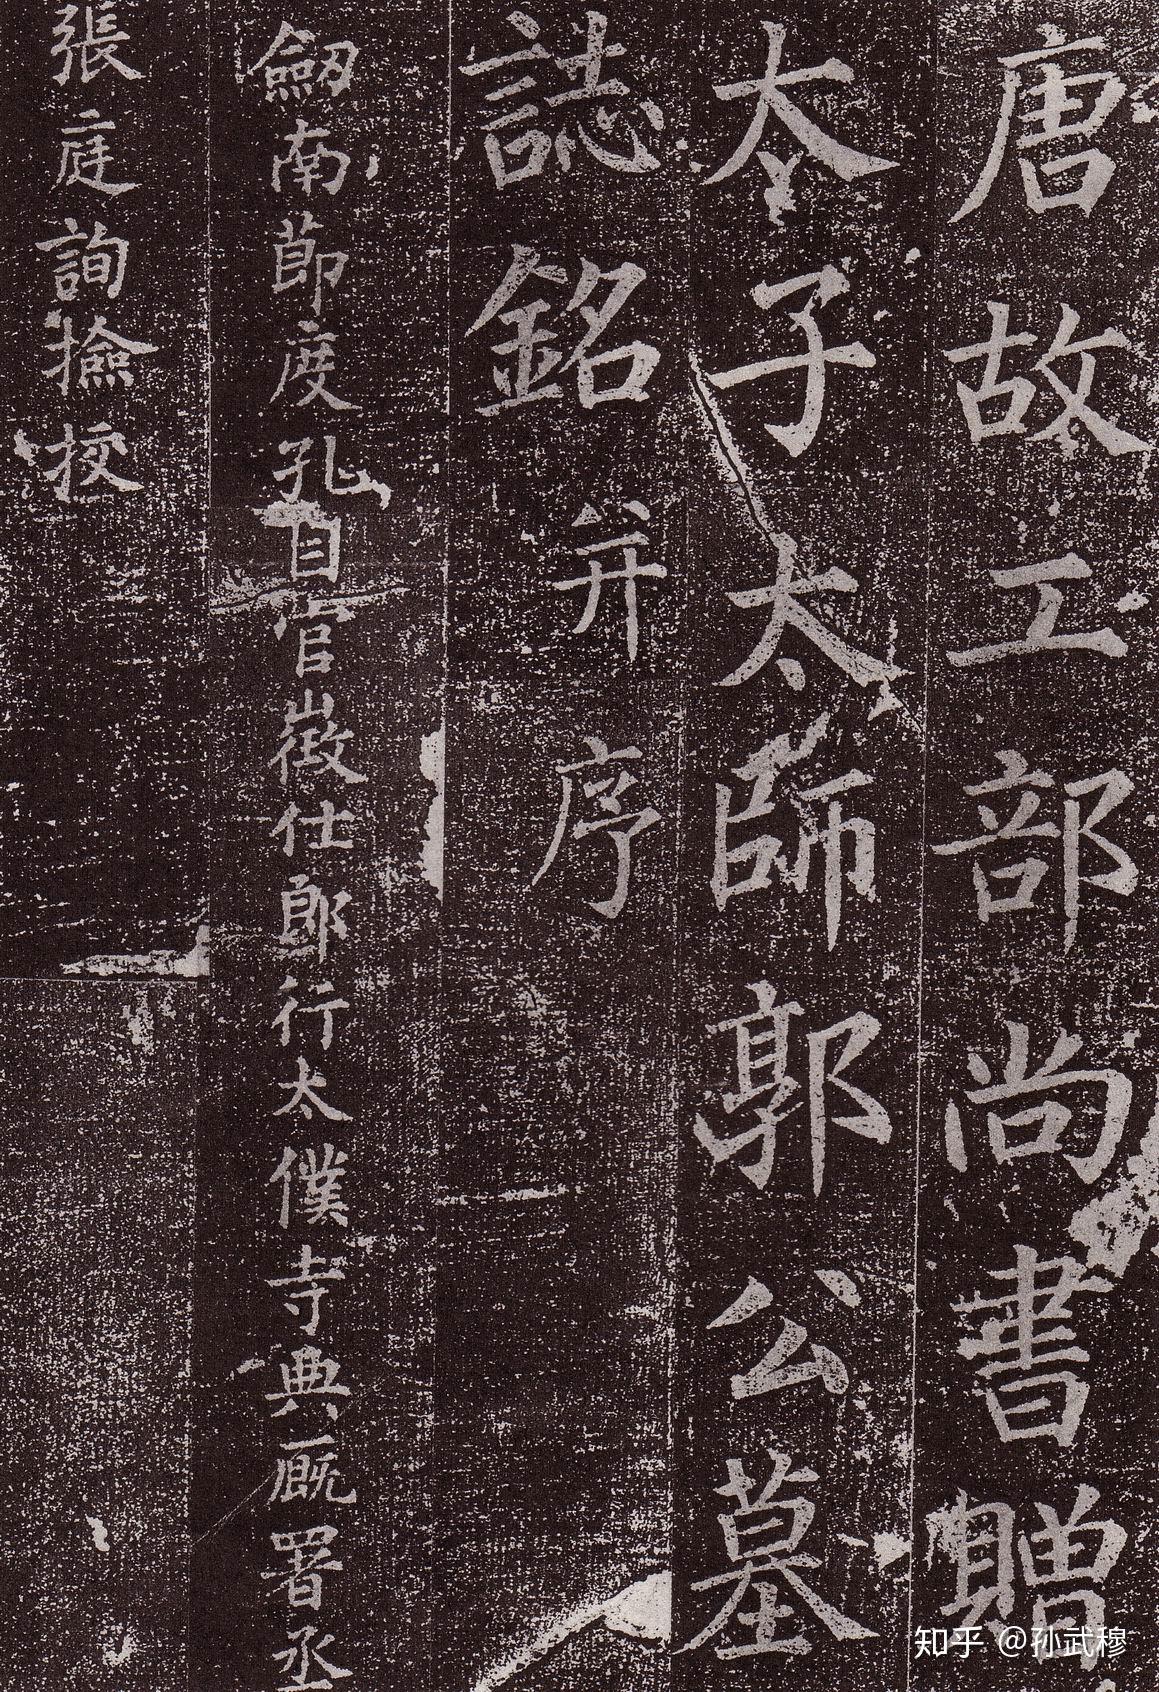 唐故工部尚書贈
太子太師郭公墓
誌銘并序
劒南節度孔目官徵仕郎行太僕寺典廐署丞
張庭詢撿挍
知乎 @孙武穆